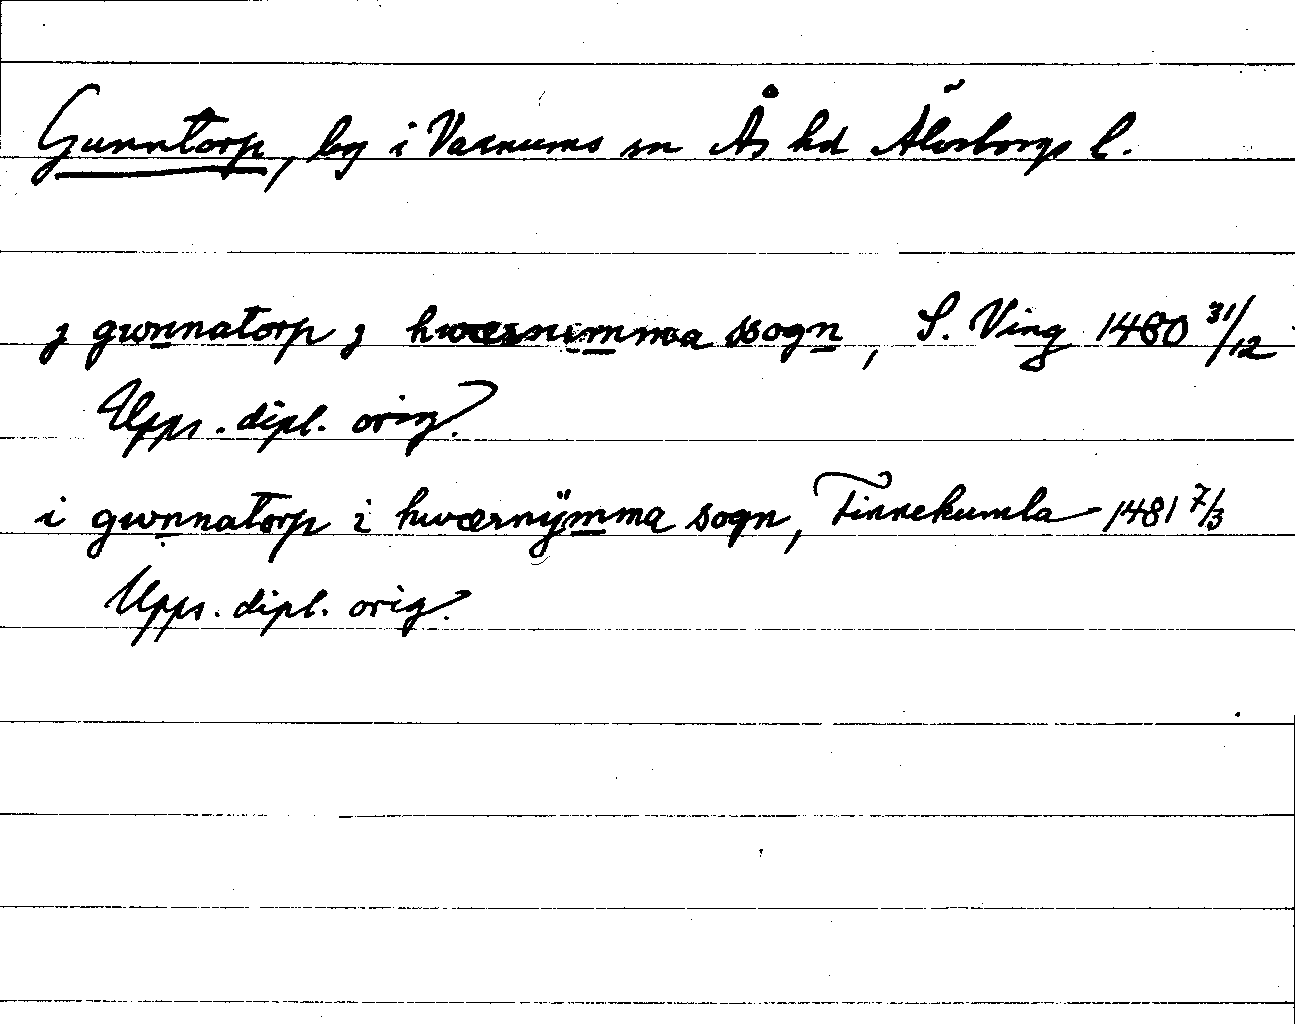 Gunntorp, by i Varnums sn Ås hd Älvsborgs l.
j gwnnatorp j hwærnimma ssogn, S. Ving 1480 31/12
Upps. dipl. orig.
i gwnnatorp i hwærnÿmma sogn, Tinnekumla 1481 7/3
Upps. dipl. orig.